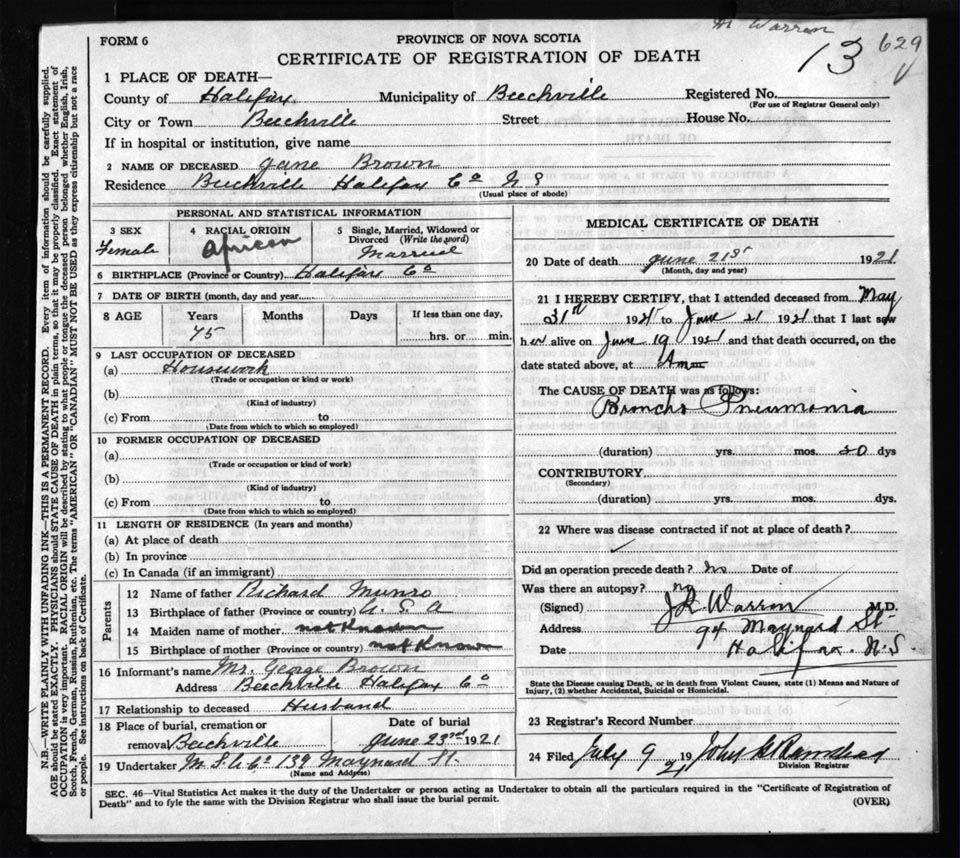 M Warren
FORM 6
PROVINCE OF NOVA SCOTIA
13 629
CERTIFICATE OF REGISTRATION OF DEATH
1 PLACE OF DEATH—
County of Halifax Municipality of Beechville Registered No.
(For use of Registrar General only)
City or Town Beechville Street House No.
If in hospital or institution, give name
2 NAME OF DECEASED Jane Brown
Residence Beechville Halifax Co N S
(Usual place of abode)
PERSONAL AND STATISTICAL INFORMATION
3 SEX 4 RACIAL ORIGIN 5 Single, Married, Widowed or Divorced (Write the word)
Female African Married
6 BIRTHPLACE (Province or Country) Halifax Co
7 DATE OF BIRTH (month, day and year)
8 AGE Years Months Days If less than one day,
75 hrs. or min.
9 LAST OCCUPATION OF DECEASED
(a) Housework
(Trade or occupation or kind or work)
(b)
(Kind of industry)
(c) From to
(Date from which to which so employed)
10 FORMER OCCUPATION OF DECEASED
(a)
(Trade or occupation or kind of work)
(b)
(Kind of industry)
(c) From to
(Date from which to which so employed)
11 LENGTH OF RESIDENCE (In years and months)
(a) At place of death
(b) In province
(c) In Canada (if an immigrant)
Parents
12 Name of father Richard Munro
13 Birthplace of father (Province or country) U. S. A
14 Maiden name of mother not Known
15 Birthplace of mother (Province or country) not Known
16 Informant's name Mr. George Brown
Address Beechville Halifax Co
17 Relationship to deceased Husband
18 Place of burial, cremation or Date of burial
removal Beechville June 23rd 1921
19 Undertaker 139 Maynard St.
(Name and Address)
MEDICAL CERTIFICATE OF DEATH
20 Date of death June 21st 1921
(Month, day and year)
21 I HEREBY CERTIFY, that I attended deceased from May
31st 1921 to June 21 1921 that I last saw
her alive on June 19 1921 and that death occurred, on the
date stated above, at m
The CAUSE OF DEATH was as follows:
Broncho Pneumonia
(duration) yrs. mos. 20 dys
CONTRIBUTORY
(Secondary)
(duration) yrs. mos. dys.
22 Where was disease contracted if not at place of death?
Did an operation precede death? no Date of
Was there an autopsy? no
(Signed) Warren M.D.
Address 94 Maynard St
Date Halifax. N.S.
State the Disease causing Death, or in death from Violent Causes, state (1) Means and Nature of
Injury, (2) whether Accidental, Suicidal or Homicidal.
23 Registrar's Record Number
24 Filed July 9 1921 John
Division Registrar
SEC. 46—Vital Statistics Act makes it the duty of the Undertaker or person acting as Undertaker to obtain all the particulars required in the "Certificate of Registration of
Death" and to fyle the same with the Division Registrar who shall issue the burial permit. (OVER)
N.B.—WRITE PLAINLY WITH UNFADING INK—THIS IS A PERMANENT RECORD. Every item of information should be carefully supplied.
AGE should be stated EXACTLY. PHYSICIANS should STATE CAUSE OF DEATH in plain terms, so that it may be properly classified. Exact statement of
OCCUPATION is very important. RACIAL ORIGIN will be described by stating to what people or tongue the deceased person belonged whether English, Irish,
Scotch, French, German, Russian, Ruthenian, etc. The terms "AMERICAN" OR "CANADIAN" MUST NOT BE USED as they express citizenship but not a race
or people. See instructions on back of Certificate.